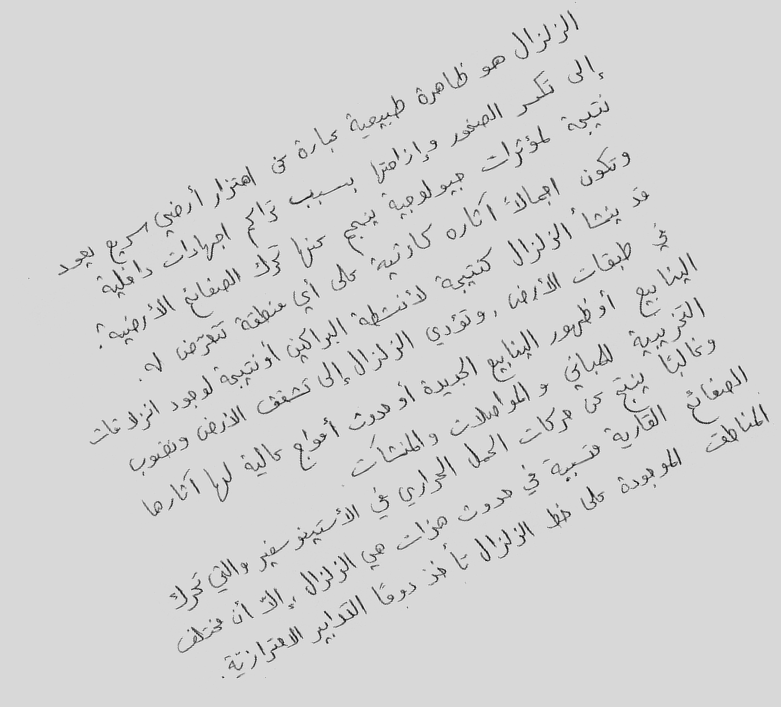 الزلزال هو ظاهرة طبيعية عبارة عن اهتزاز أرضي سريع يعود
إلى تكسر الصخور وإزاحتها بسبب تراكم اجهادات داخلية
نتيجة لمؤثرات جيولوجية ينجم عنها تحرك الصفائح الأرضية.
وتكون اجمالاً آثاره كارثية على أي منطقة تتعرض له.
قد ينشأ الزلزال كنتيجة لأنشطة البراكين أو نتيجة لوجود انزلاقات
في طبقات الأرض، وتؤدي الزلزال إلى تشقق الأرض ونضوب
الينابيع أو ظهور الينابيع الجديدة أو حدوث أمواج عالية لها آثارها
التخريبية للمباني و المواصلات والمنشآت.
وغالباً ينتج عن حركات الحمل الحراري في الأستينوسفير والتي تحرك
الصفائح القارية متسببة في حدوث هزات هي الزلزال، إلا أن مختلف
المناطق الموجودة على خط الزلزال تأخذ دومًا التدابير الاحترازية.